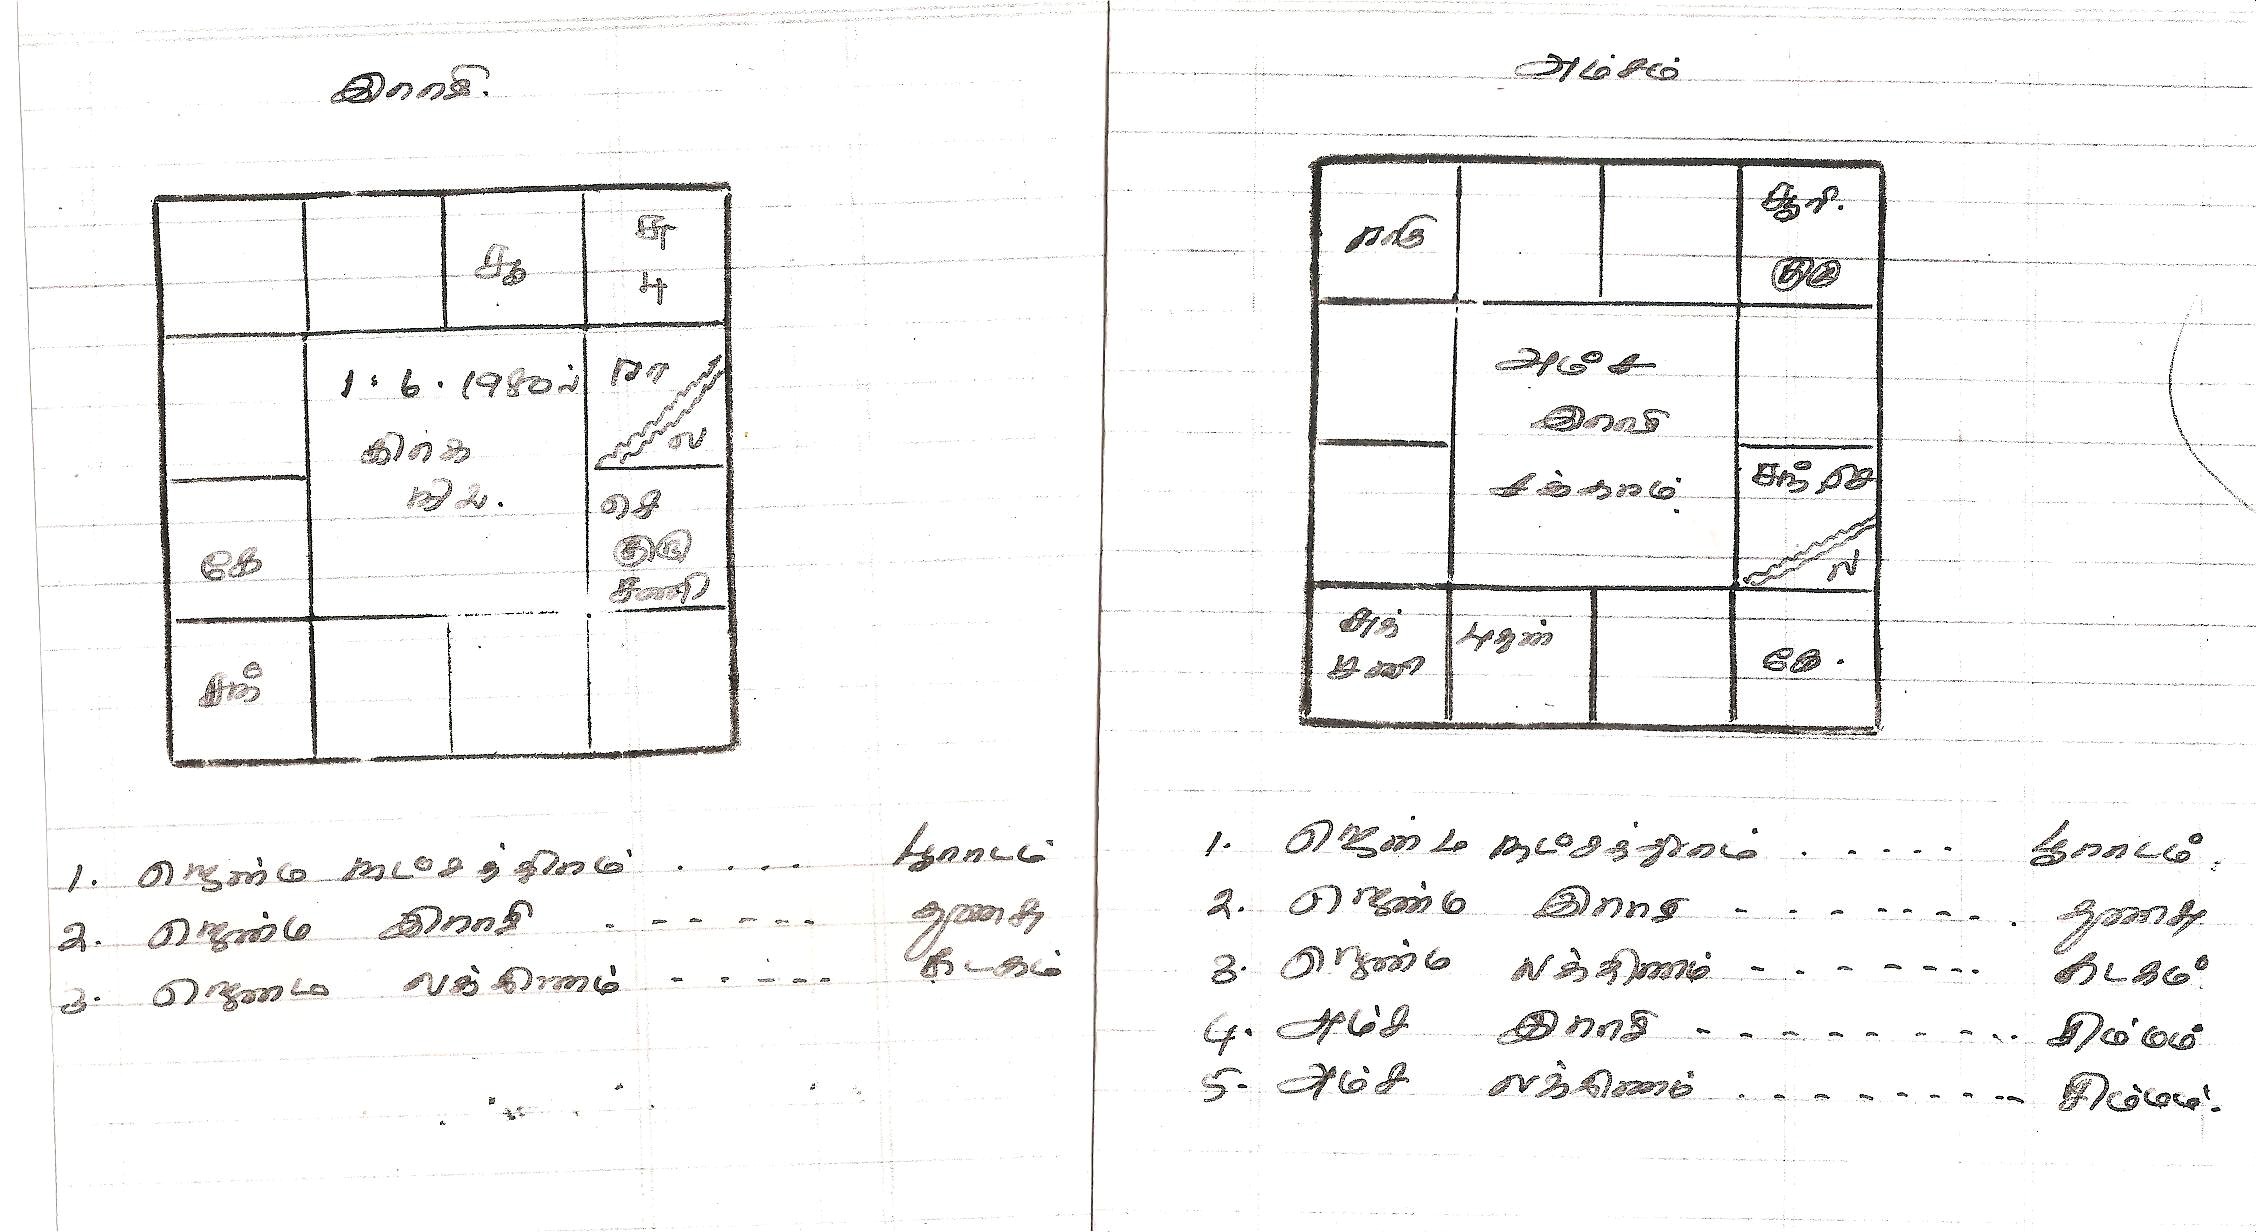 இராசி.
சூ
சு
பு
1.6.1980ல்
கிரக
நிலை.
ரா
ல
செ
குரு
சனி
கே
சந்
1. ஜென்ம நட்சத்திரம் .... பூராடம்
2. ஜென்ம இராசி ------ தனுசு
3. ஜென்ம லக்கிணம் ------ கடகம்
அம்சம்
ராகு
சூரி.
குரு
அம்ச
இராசி
சக்கரம்.
சந் செ
ல
சுக்
சனி
புதன்
கே.
1. ஜென்ம நட்சத்திரம் ..... பூராடம்.
2. ஜென்ம இராசி -------- தனுசு
3. ஜென்ம லக்கிணம் ------- கடகம்
4. அம்ச இராசி --------- சிம்மம்
5. அம்ச லக்கிணம் --------- சிம்மம்.